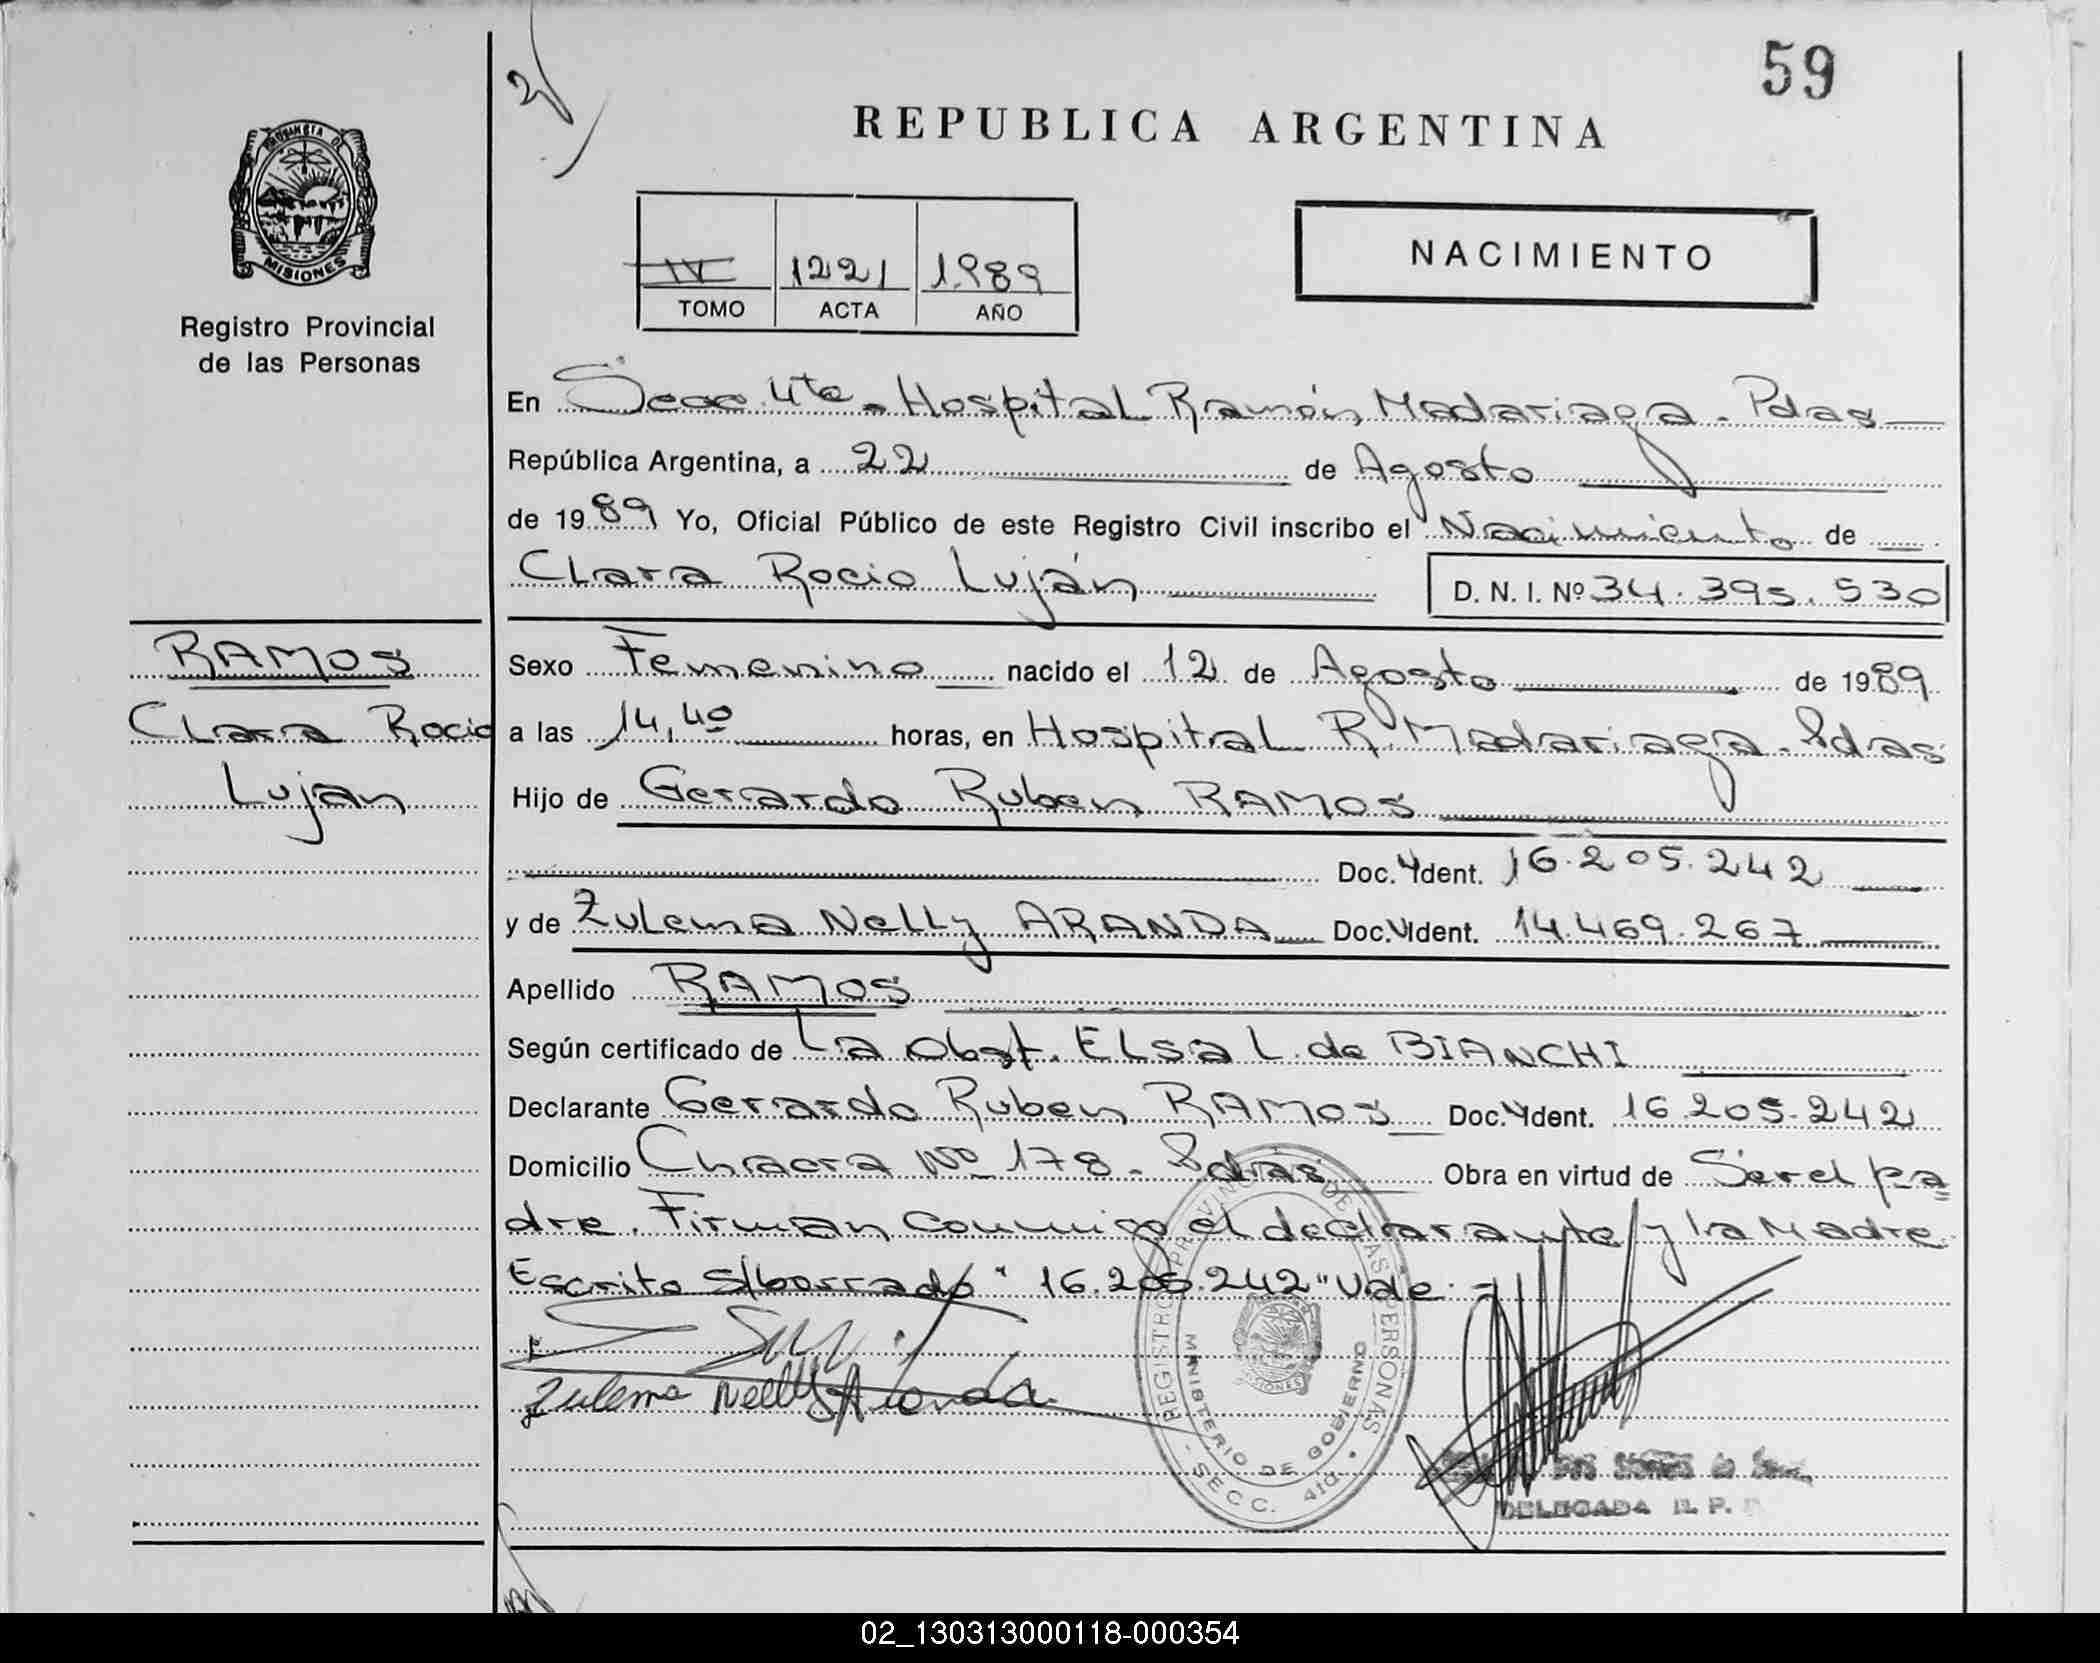 59
REPUBLICA ARGENTINA
PROVINCIA DE
MISIONES
Registro Provincial
de las Personas
IV 1221 1989
TOMO ACTA AÑO
NACIMIENTO
En Secc 4ta. Hospital Ramón Madariaga. Pdas
República Argentina, a 22 de Agosto
de 1989 Yo, Oficial Público de este Registro Civil inscribo el Nacimiento de
Clara Rocio Luján D. N. I. Nº 34.395.530
RAMOS
Clara Rocio
Luján
Sexo Femenino nacido el 12 de Agosto de 1989
a las 14,40 horas, en Hospital R. Madariaga. Pdas
Hijo de Gerardo Ruben RAMOS
Doc. Ident. 16.205.242
y de Zulema Nelly ARANDA Doc. Ident. 14.469.267
Apellido RAMOS
Según certificado de La Obst. Elsa L. de BIANCHI
Declarante Gerardo Ruben RAMOS Doc. Ident. 16.205.242
Domicilio Chacra Nº 178. Pdas Obra en virtud de Ser el pa
dre. Firman conmigo el declarante y la Madre
Escrito s/borrado "16.205.242" Vale.
Zulema Nelly Aranda
REGISTRO PROVINCIAL DE LAS PERSONAS
MINISTERIO DE GOBIERNO
SECC. 4ta.
MISIONES
DELEGADA R. P.
02_130313000118-000354